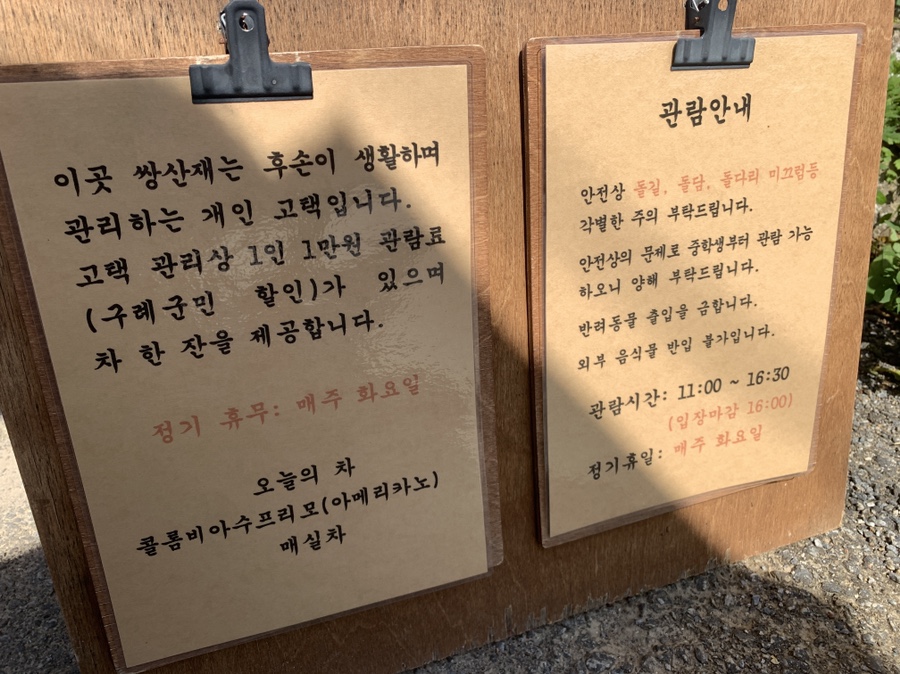 이곳 쌍산재는 후손이 생활하며
관리하는 개인 고택입니다.
고택 관리상 1인 1만원 관람료
(구례군민 할인)가 있으며
차 한 잔을 제공합니다.
정기 휴무: 매주 화요일
오늘의 차
콜롬비아수프리모(아메리카노)
매실차
관람안내
안전상 돌길, 돌담, 돌다리 미끄럼등
각별한 주의 부탁드립니다.
안전상의 문제로 중학생부터 관람 가능
하오니 양해 부탁드립니다.
반려동물 출입을 금합니다.
외부 음식물 반입 불가입니다.
관람시간: 11:00 ~ 16:30
(입장마감 16:00)
정기휴일: 매주 화요일